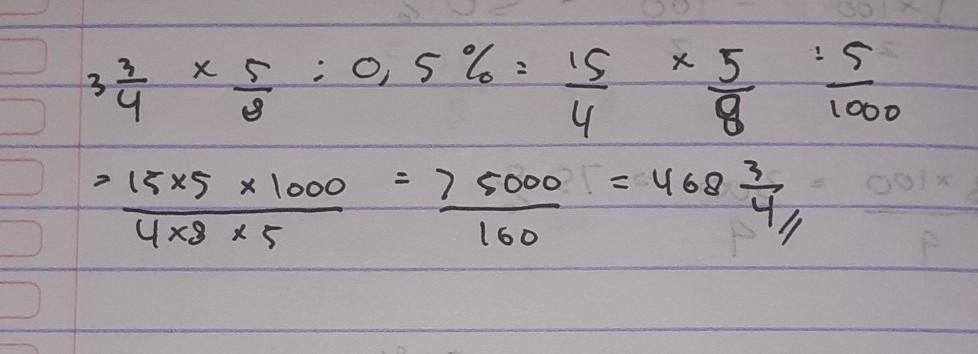 3 3/4 × 5/8 : 0,5 % = 15/4 × 5/8 : 5/1000
= 15×5 ×1000/4×8 ×5 = 75000/160 = 468 3/4 //